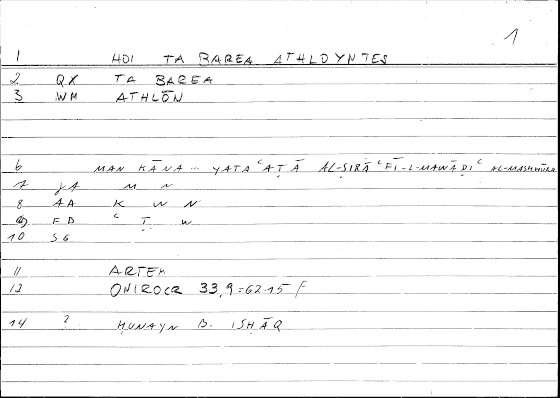 1
1 HOI TA BAREA ATHLOYNTES
2 QX TA BAREA
3 WM ATHLŌN
6 MAN KĀNA ... YATAʿĀṬĀ AL-ṢIRĀʿ FĪ-L-MAWĀḌIʿ AL-MASHHŪRA
7 YA M N
8 AA K W N
9 FD ʿ Ṭ W
10 SG
11 ARTEM
12 ONIROCR 33,9=62.15 F
14 ? ḤUNAYN B. ISḤĀQ